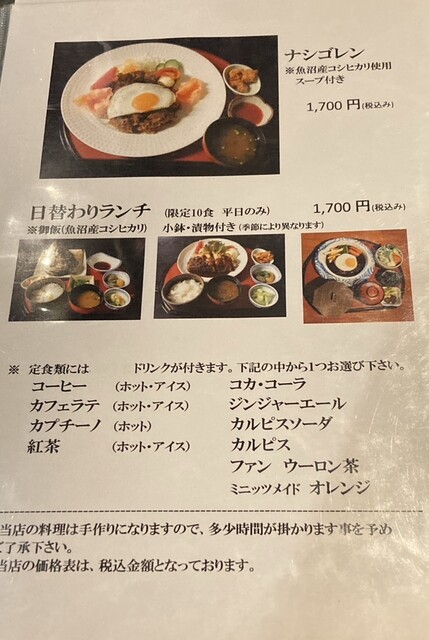 ナシゴレン
※魚沼産コシヒカリ使用
スープ付き
1,700 円(税込み)
日替わりランチ (限定10食 平日のみ) 1,700円(税込み)
※御飯(魚沼産コシヒカリ) 小鉢・漬物付き(季節により異なります)
※ 定食類には ドリンクが付きます。下記の中から1つお選び下さい。
コーヒー (ホット・アイス) コカ・コーラ
カフェラテ (ホット・アイス) ジンジャーエール
カプチーノ (ホット) カルピスソーダ
紅茶 (ホット・アイス) カルピス
ファン ウーロン茶
ミニッツメイド オレンジ
当店の料理は手作りになりますので、多少時間が掛かります事を予め
ご了承下さい。
当店の価格表は、税込金額となっております。